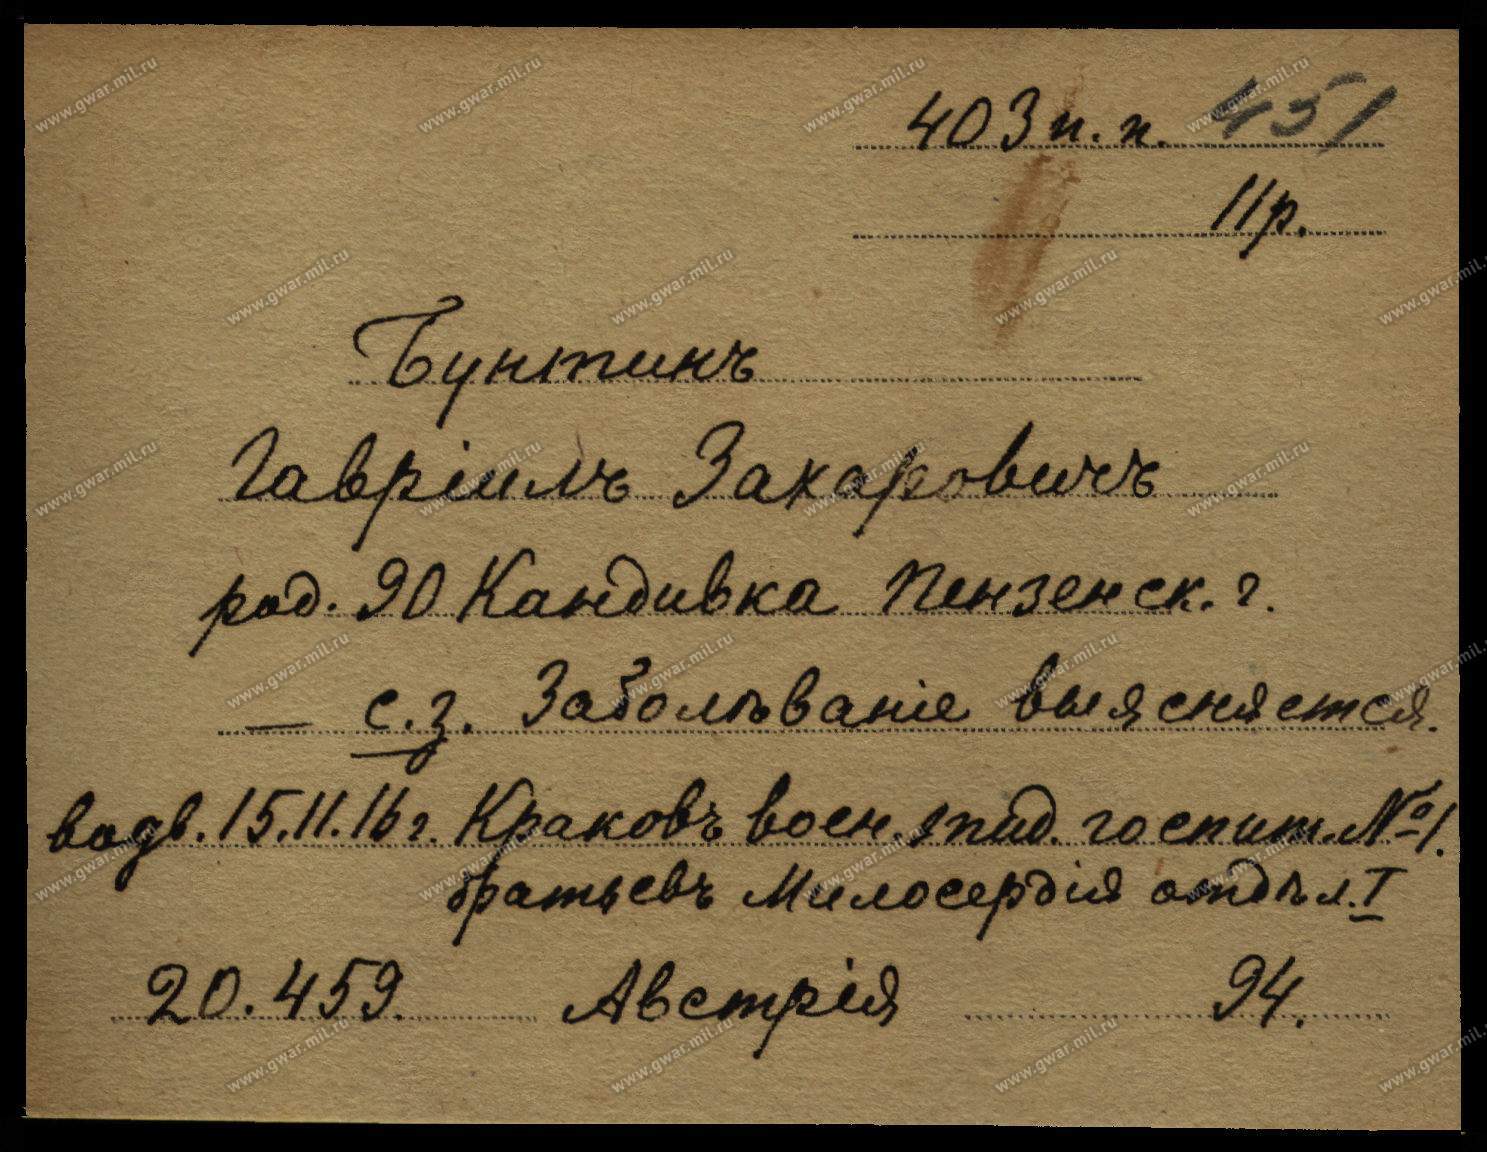 403 п. п. 451
11 р.
Бунтинъ
Гавріилъ Захаровичъ
род. 90 Кандивка Пензенск. г.
— с. з. Заболѣваніе выясняется.
водв. 15.11.16 г. Краковъ воен. эпид. госпит. № 1.
братьевъ Милосердія отдѣл. I
20.459. Австрія 94.
www.gwar.mil.ru